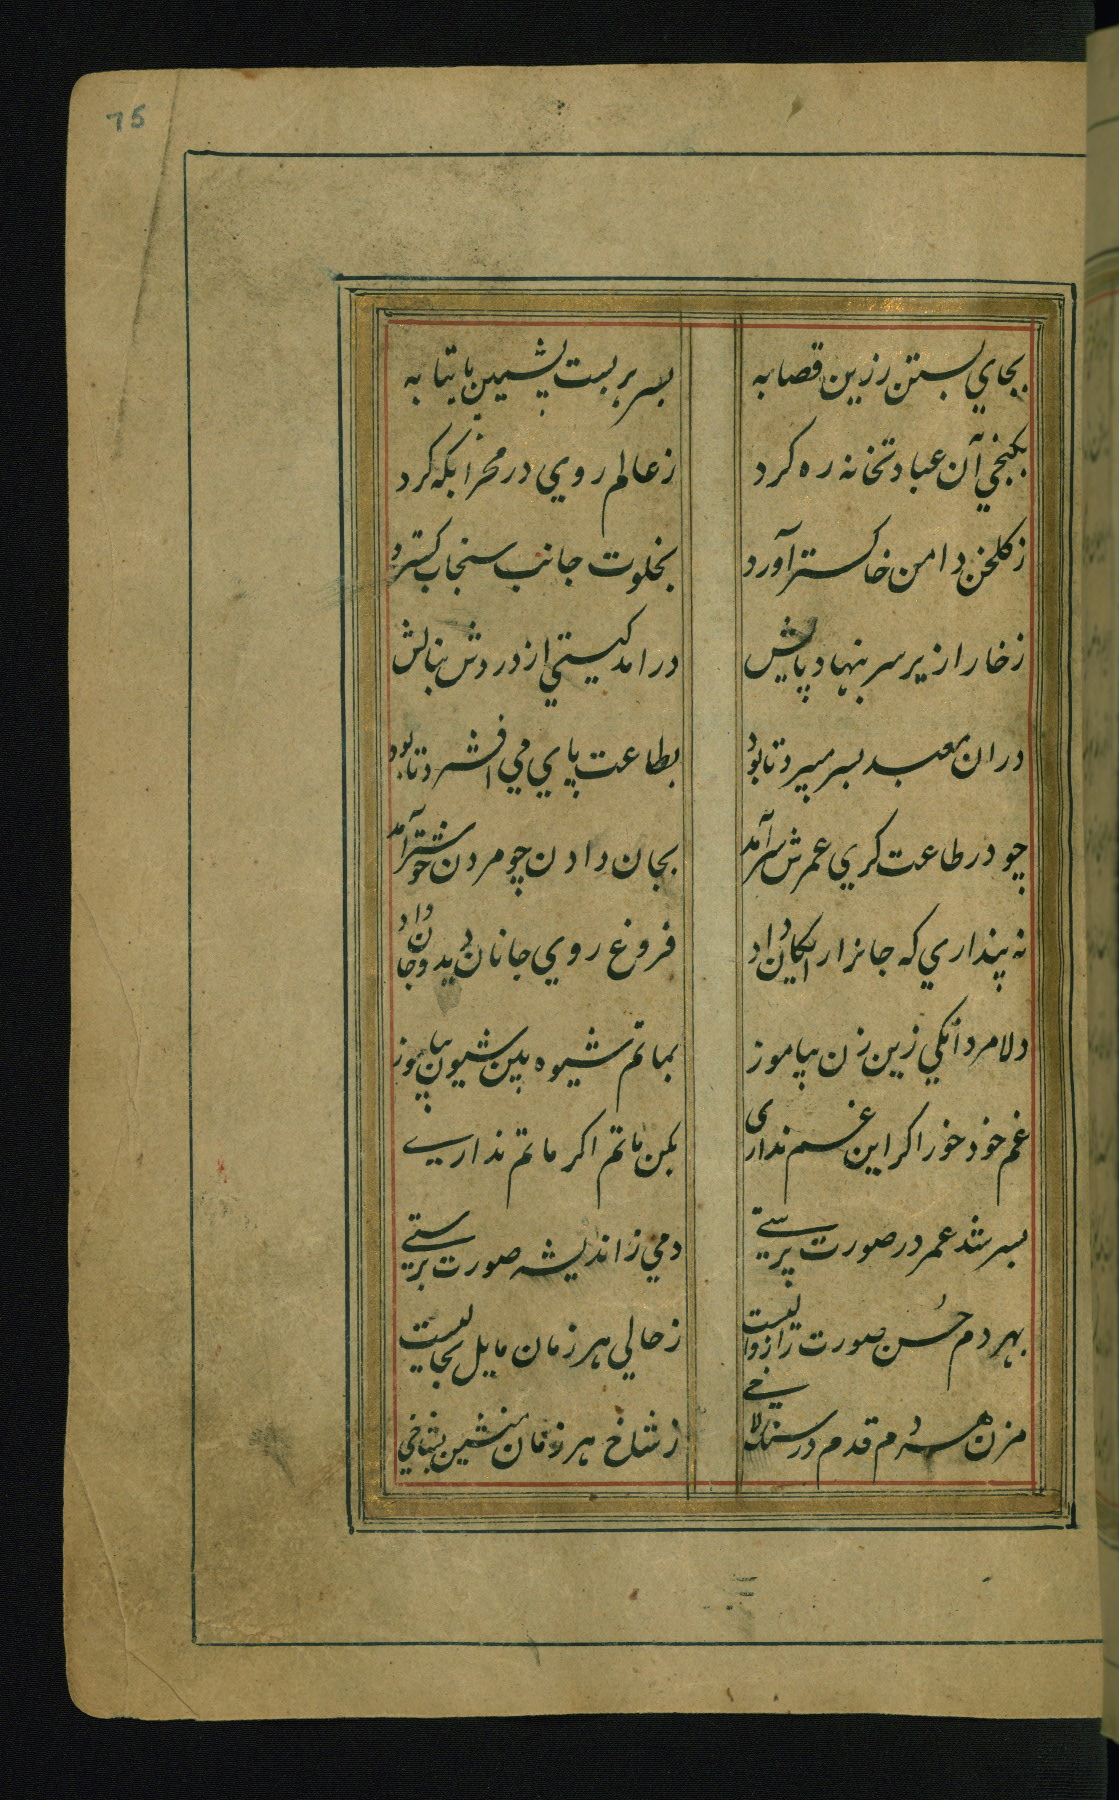 75
بجای بستن زرین قصابه بسر بربست پشمین پایتابه
بکنجی آن عبادتخانه ره کرد ز عالم روی در محرابکه کرد
ز کلخن دامن خاکستر آورد بخلوت جانب سنجاب کسترد
ز خارا زیر سر بنهاد بالش درامد کیتی از دردش بنالش
دران معبد بسر میبرد تا بود بطاعت پای می افشرد تا بود
چو در طاعت کری عمرش سرآمد بجان دادن چو مردن خوشتر آمد
نه پنداری که جانرا رایکان داد فروغ روی جانان دید و جان داد
دلا مردانکی زین زن بیاموز بماتم شیوه بین شیون بیاموز
غم خود خور اکر این غم نداری بکن ماتم اکر ماتم نداری
بسر شد عمر در صورت پرستی دمی ز اندیشه صورت برستی
بهر دم حسن صورت را زوالیست ز حالی هر زمان مایل بحالیست
مزن هر دم قدم در سنکلاخی ز شاخ هر زمان منشین بشاخی